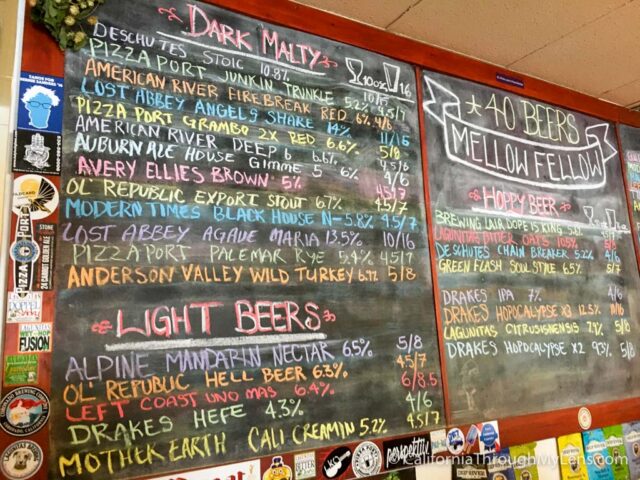 DARK MALTY
DESCHUTES STOIC 10.8% 10/15
PIZZA PORT JUNKIN TRUNKLE 5.2% 4.5/7
AMERICAN RIVER FIREBREAK RED 6% 4/6
LOST ABBEY ANGELS SHARE 14% 11/16
PIZZA PORT GRAMBO 2X RED 6.6% 5/8
AMERICAN RIVER DEEP 6 6.6%
AUBURN ALE HOUSE GIMME 5 6% 4/6
AVERY ELLIES BROWN 5% 4.5/7
OL' REPUBLIC EXPORT STOUT 6.7% 4.5/7
MODERN TIMES BLACK HOUSE N- 5.8% 4.5/7
LOST ABBEY AGAVE MARIA 13.5% 10/16
PIZZA PORT PALEMAR RYE 5.4% 4.5/7
ANDERSON VALLEY WILD TURKEY 6.9% 5/8
LIGHT BEERS
ALPINE MANDARIN NECTAR 6.5% 5/8
OL' REPUBLIC HELL BEER 6.3% 4.5/7
LEFT COAST UNO MAS 6.4% 6/8.5
DRAKES HEFE 4.3% 4/6
MOTHER EARTH CALI CREAMIN 5.2% 4.5/7
*40 BEERS
MELLOW FELLOW
HOPPY BEER
BREWING LAIR DOPE IS KING
DESCHUTES CHAIN BREAKER 5.2% 4/6
GREEN FLASH SOUL STYLE 6.5% 5/7
DRAKES IPA 7% 4/6
DRAKES HOPOCALYPSE X3 12.5%
LAGUNITAS CITRUSINENSIS 7.9% 5/8
DRAKES HOPOCALYPSE X2 9.3% 5/8
PIZZA PORT
STONE
FUSION
perspective
CaliforniaThroughMyLens.com